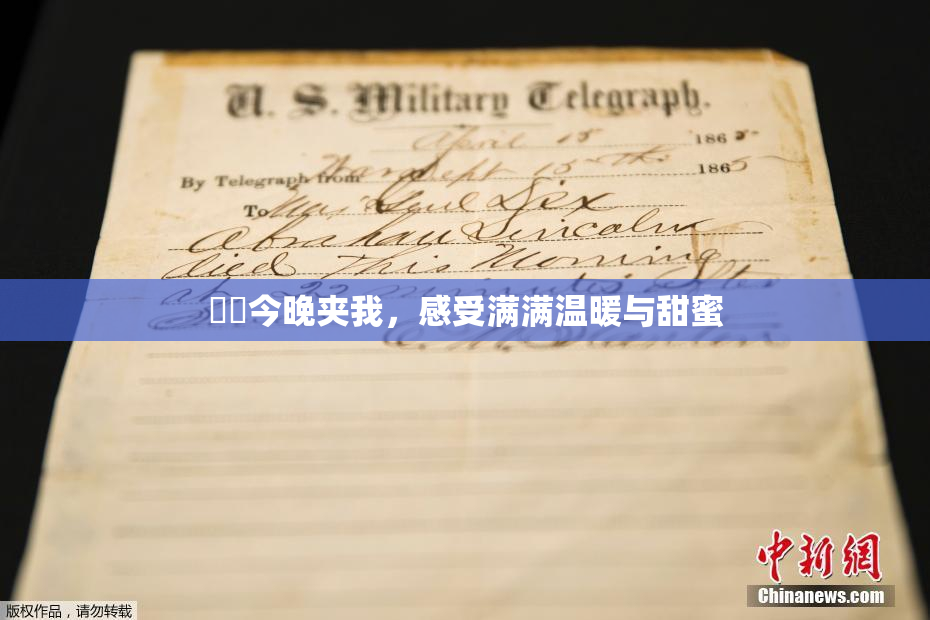 U. S. Military Telegraph.
April 15 1865
By Telegraph from War Dept 15th 1865
To Maj Genl Dix
Abraham Lincoln
died This Morning
at 22 minutes after
今晚夹我，感受满满温暖与甜蜜
E. M. Stanton
中新网
Chinanews.com
版权作品，请勿转载